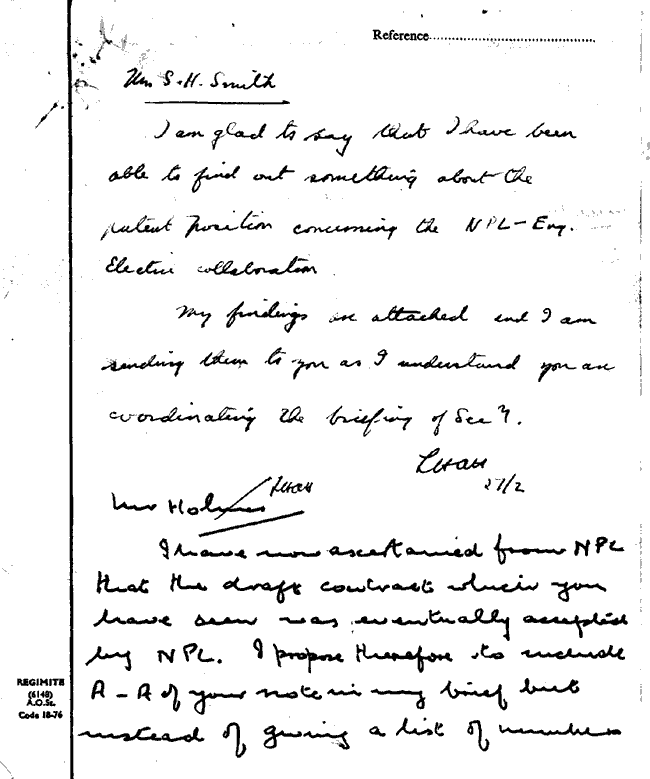 Reference
Mr S.H. Smith
I am glad to say that I have been
able to find out something about the
patent position concerning the NPL-Eng.
Electric collaboration
My findings are attached and I am
sending them to you as I understand you are
coordinating the briefing of Secy.
LHAH
27/2
LHAH
Mr Holmes
I have now ascertained from NPL
that the draft contract which you
have seen was eventually accepted
by NPL. I propose therefore to include
A-A of your note in my brief but
instead of giving a list of numbers
REGIMITE
(6148)
A.O.St.
Code 18-76